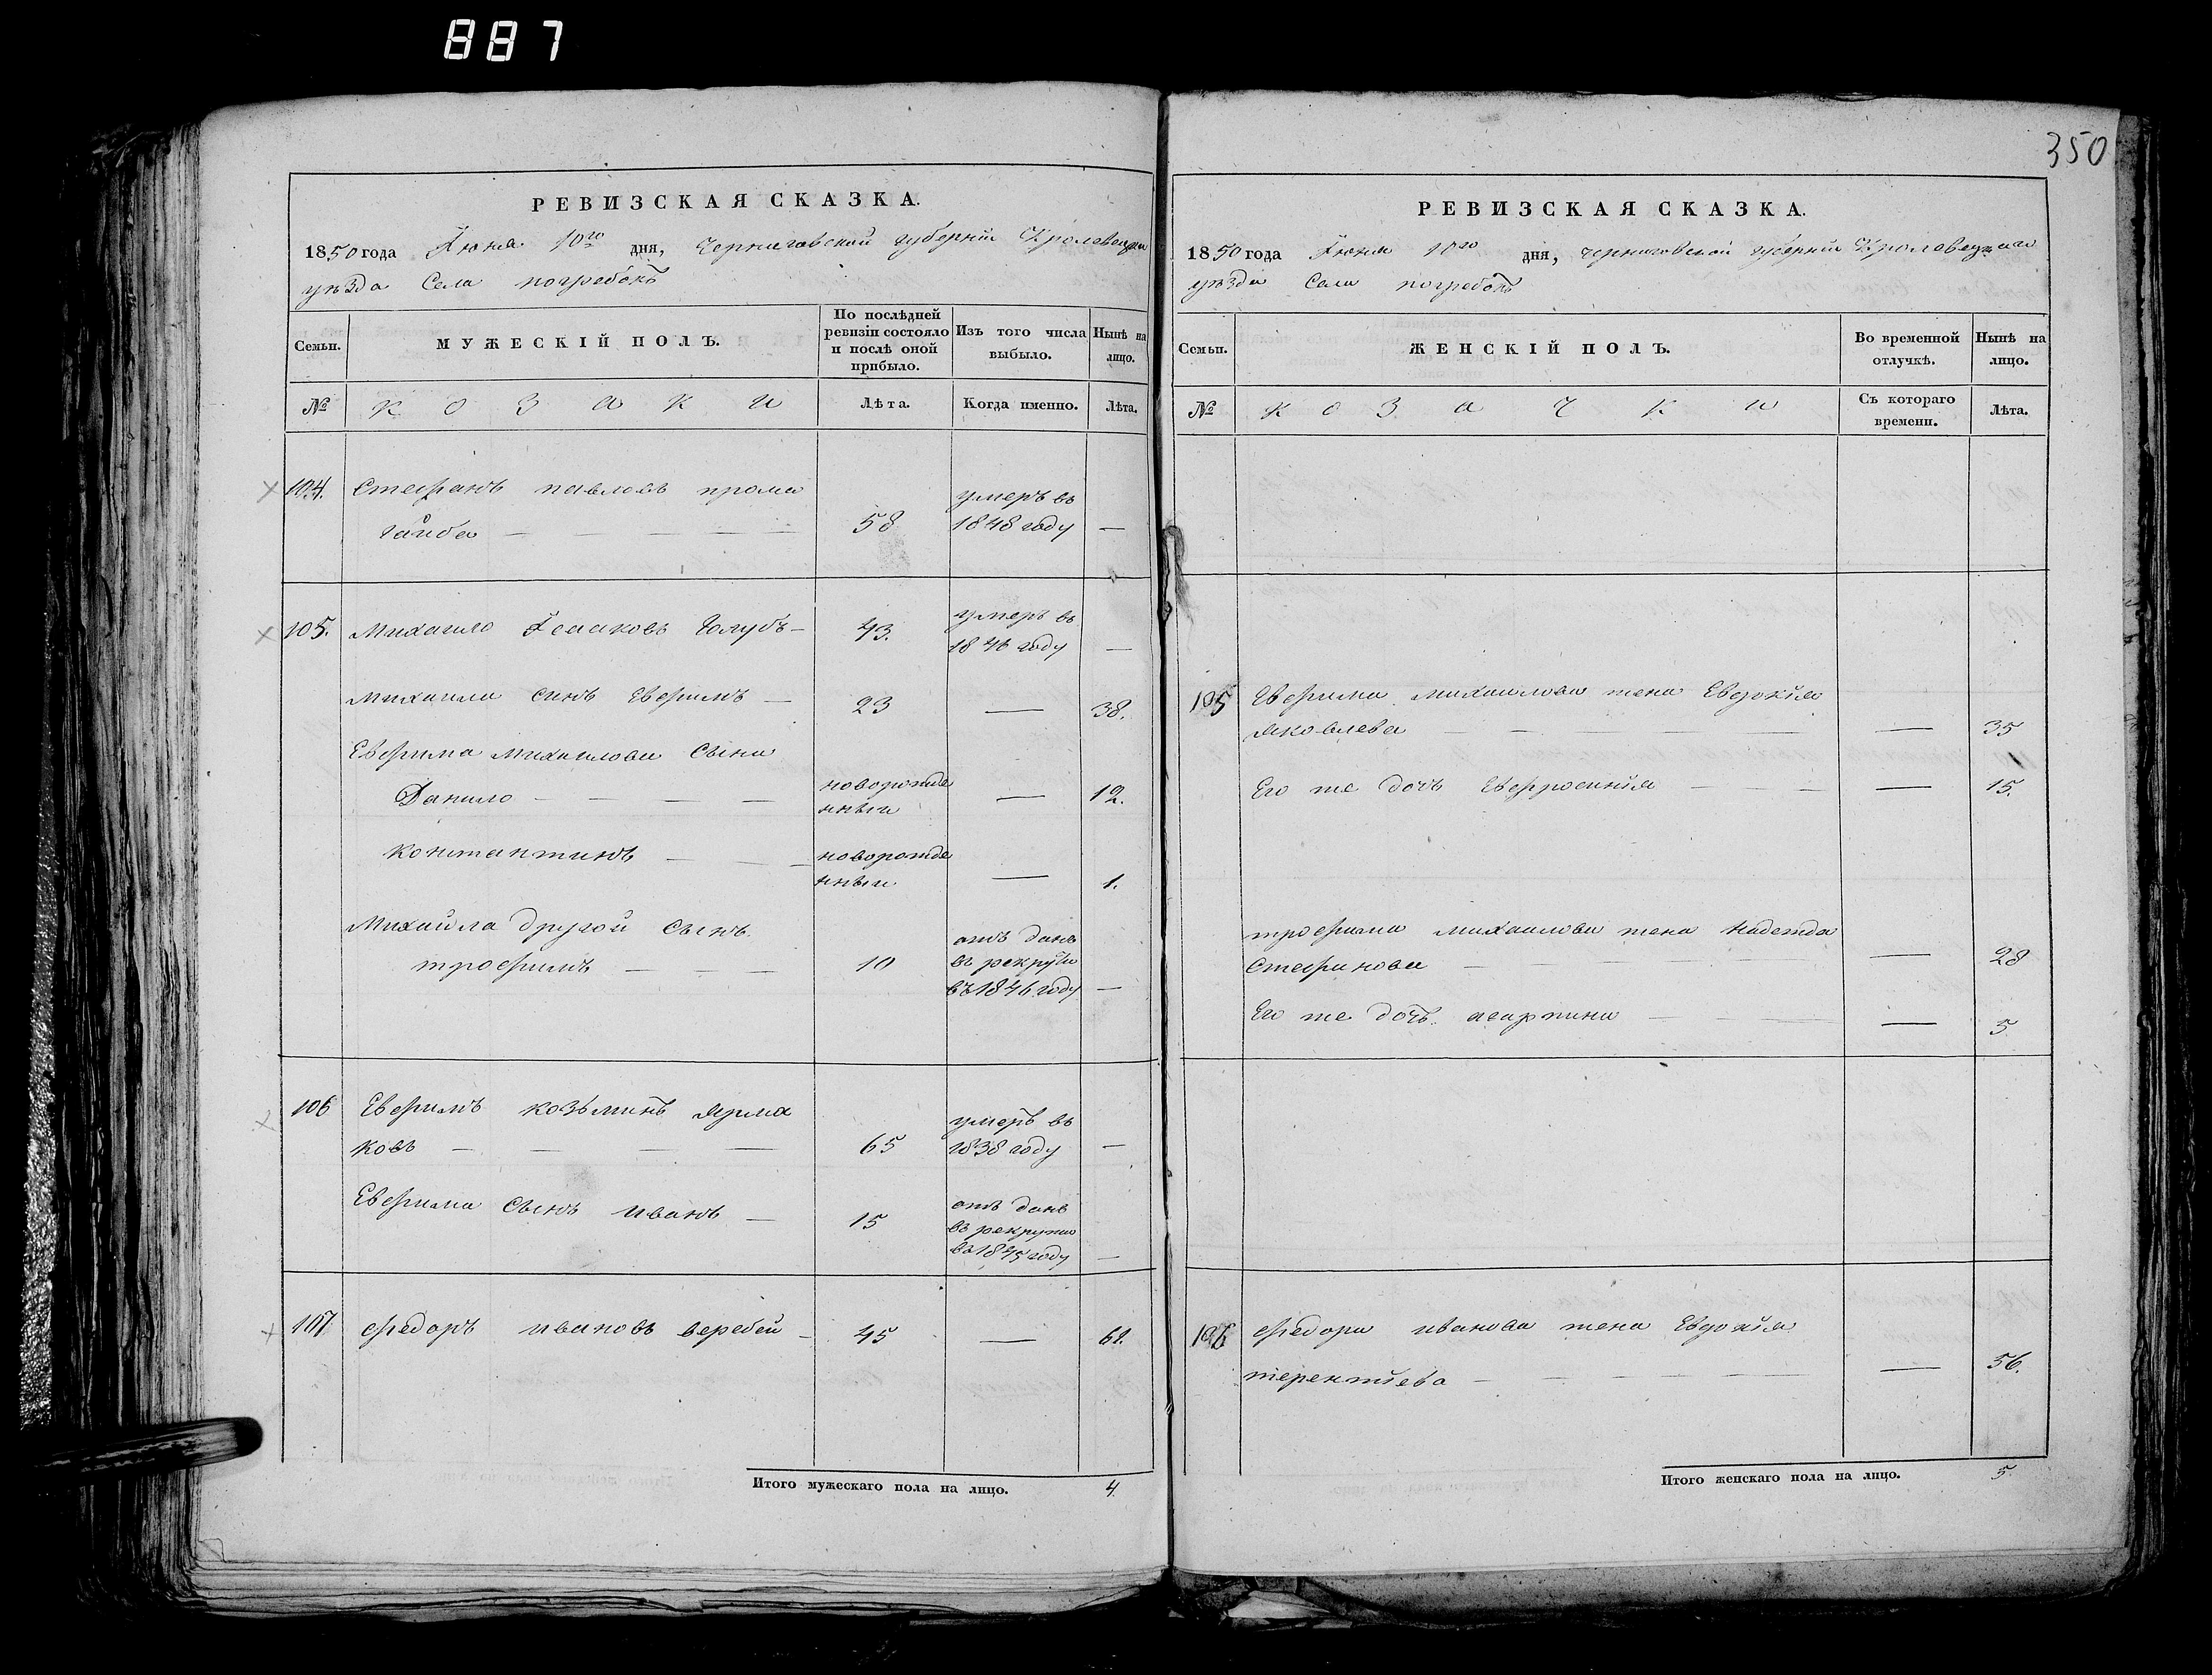 887
350
РЕВИЗСКАЯ СКАЗКА.
1850 года Іюня 10го дня, Черниговской губерніи Кролевецкаго
уѣзда Села погребокъ
Семьи. МУЖЕСКІЙ ПОЛЪ. По послѣдней ревизіи состояло и послѣ оной прибыло. Изъ того числа выбыло. Нынѣ на лицо.
№ козаки Лѣта. Когда именно. Лѣта.
104. Стефанъ павловъ
58 умеръ въ 1848 году —
105. Михаило Голубъ — 43. умеръ въ 1846 году —
Михаила синъ Евфимъ — 23 — 38.
Евфима Михаилова сына
Данило — новорожденныи — 12.
Константинъ — новорожденныи — 1.
Михайла другой сынъ
трофимъ — 10 отъ данъ въ рекруты въ 1846 году —
106 Евфимъ козьминъ Ярма
ковъ — 65 умеръ въ 1838 году —
Евфима сынъ иванъ — 15 отъ данъ въ рекруты въ 1845 году —
107 Федоръ ивановъ веребей — 45 — 61.
Итого мужескаго пола на лицо. 4.
РЕВИЗСКАЯ СКАЗКА.
1850 года Іюня 10го дня, Черниговской губерніи Кролевецкаго
уѣзда Села погребокъ
Семьи. ЖЕНСКІЙ ПОЛЪ. Во временной отлучкѣ. Нынѣ на лицо.
№ козачки Съ котораго времени. Лѣта.
105 Евфима Михаилова жена Евдокія
Яковлева — — 35
Его же дочь Евфросинія — — 15.
трофима михаилова жена Надежда
Стефанова — — 28
Его же дочь — — 5
106 Федора иванова жена Евдокія
терентіева — — 56.
Итого женскаго пола на лицо. 5.